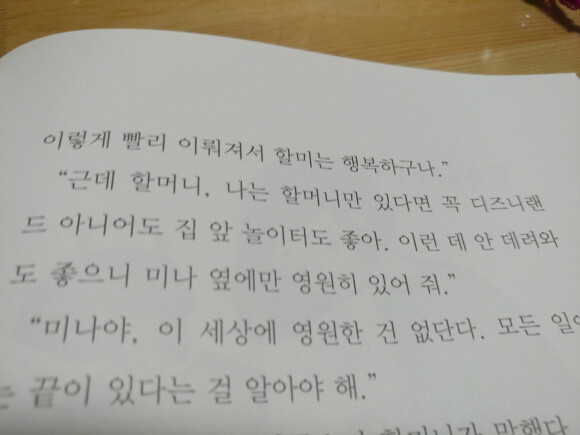 이렇게 빨리 이뤄져서 할미는 행복하구나.”
“근데 할머니, 나는 할머니만 있다면 꼭 디즈니랜
드 아니어도 집 앞 놀이터도 좋아. 이런 데 안 데려와
도 좋으니 미나 옆에만 영원히 있어 줘.”
“미나야, 이 세상에 영원한 건 없단다. 모든 일에
는 끝이 있다는 걸 알아야 해.”
할머니가 말했다